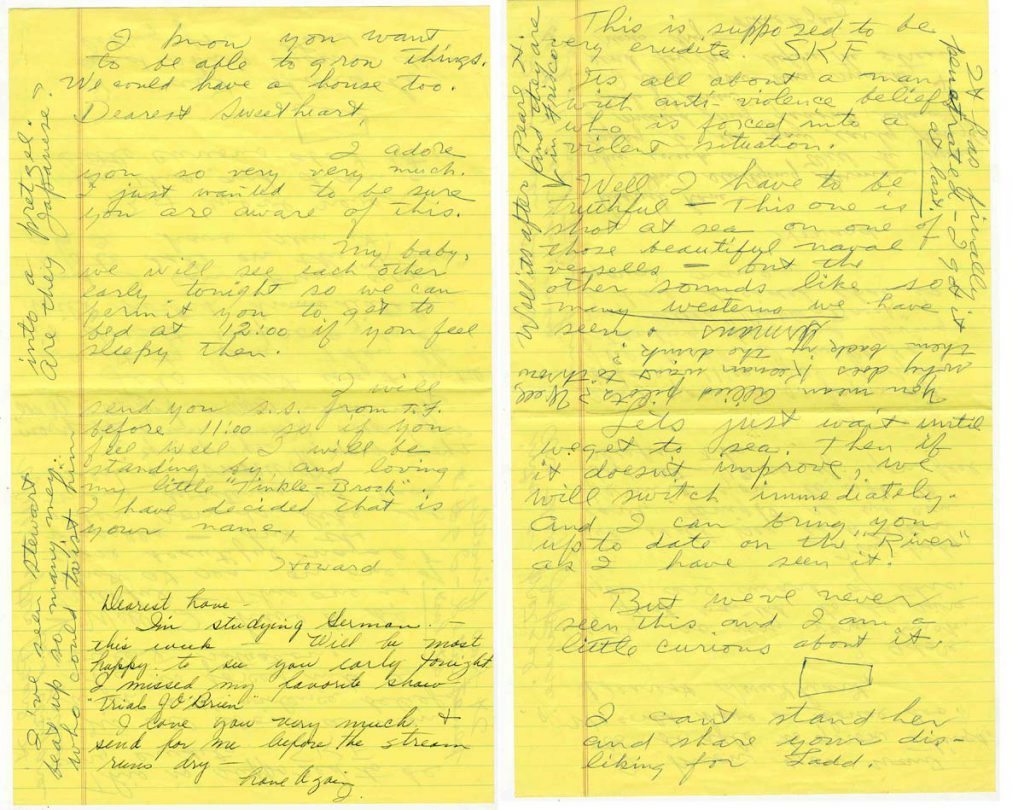 I know you want
to be able to grow things.
We could have a house too.
Dearest Sweetheart,
I adore
you so very very much.
I just wanted to be sure
you are aware of this.
My baby,
we will see each other
early tonight so we can
permit you to get to
bed at 12:00 if you feel
sleepy then.
I will
send you s.s. from T.F.
before 11:00 so if you
feel well I will be
standing by and loving
my little "Tinkle-Brook".
I have decided that is
your name,
Howard
Dearest love -
I'm studying German -
this week - Will be most
happy to see you early tonight
I missed my favorite show
"Trials of O'Brien"
I love you very much &
send for me before the stream
runs dry -
I've seen Stewart
beat up so many men.
who could twist him
into a pretzel.
Are they Japanese?
This is supposed to be
very erudite. SKF
Its all about a man
with anti-violence belief
who is forced into a
violent situation.
Well I have to be
truthful - This one is
shot at sea on one of
those beautiful naval
vessells - but the
other sounds like so
many westerns we have
seen.
Germans
them back in the drink?
why does Keenan want to throw
You mean allied pilots? Well,
Lets just wait until
we get to sea. Then if
it doesn't improve, we
will switch immediately.
And I can bring you
up to date on the "River"
as I have seen it.
But we've never
seen this and I am a
little curious about it.
I can't stand her
and share your dis-
liking for Ladd.
Well its after
and they are
It has finally
penetrated - I got it
at last